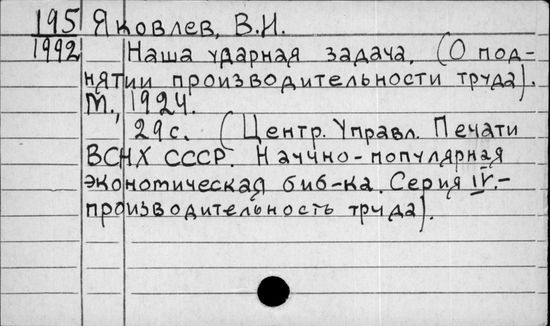 195 Яковлев, В.И.
1992 Наша ударная задача. (О под-
нятии производительности труда).
М., 1924.
29с. (Центр. Управл. Печати
ВСНХ СССР. Научно-популярная
экономическая биб-ка. Серия IV.-
производительность труда).